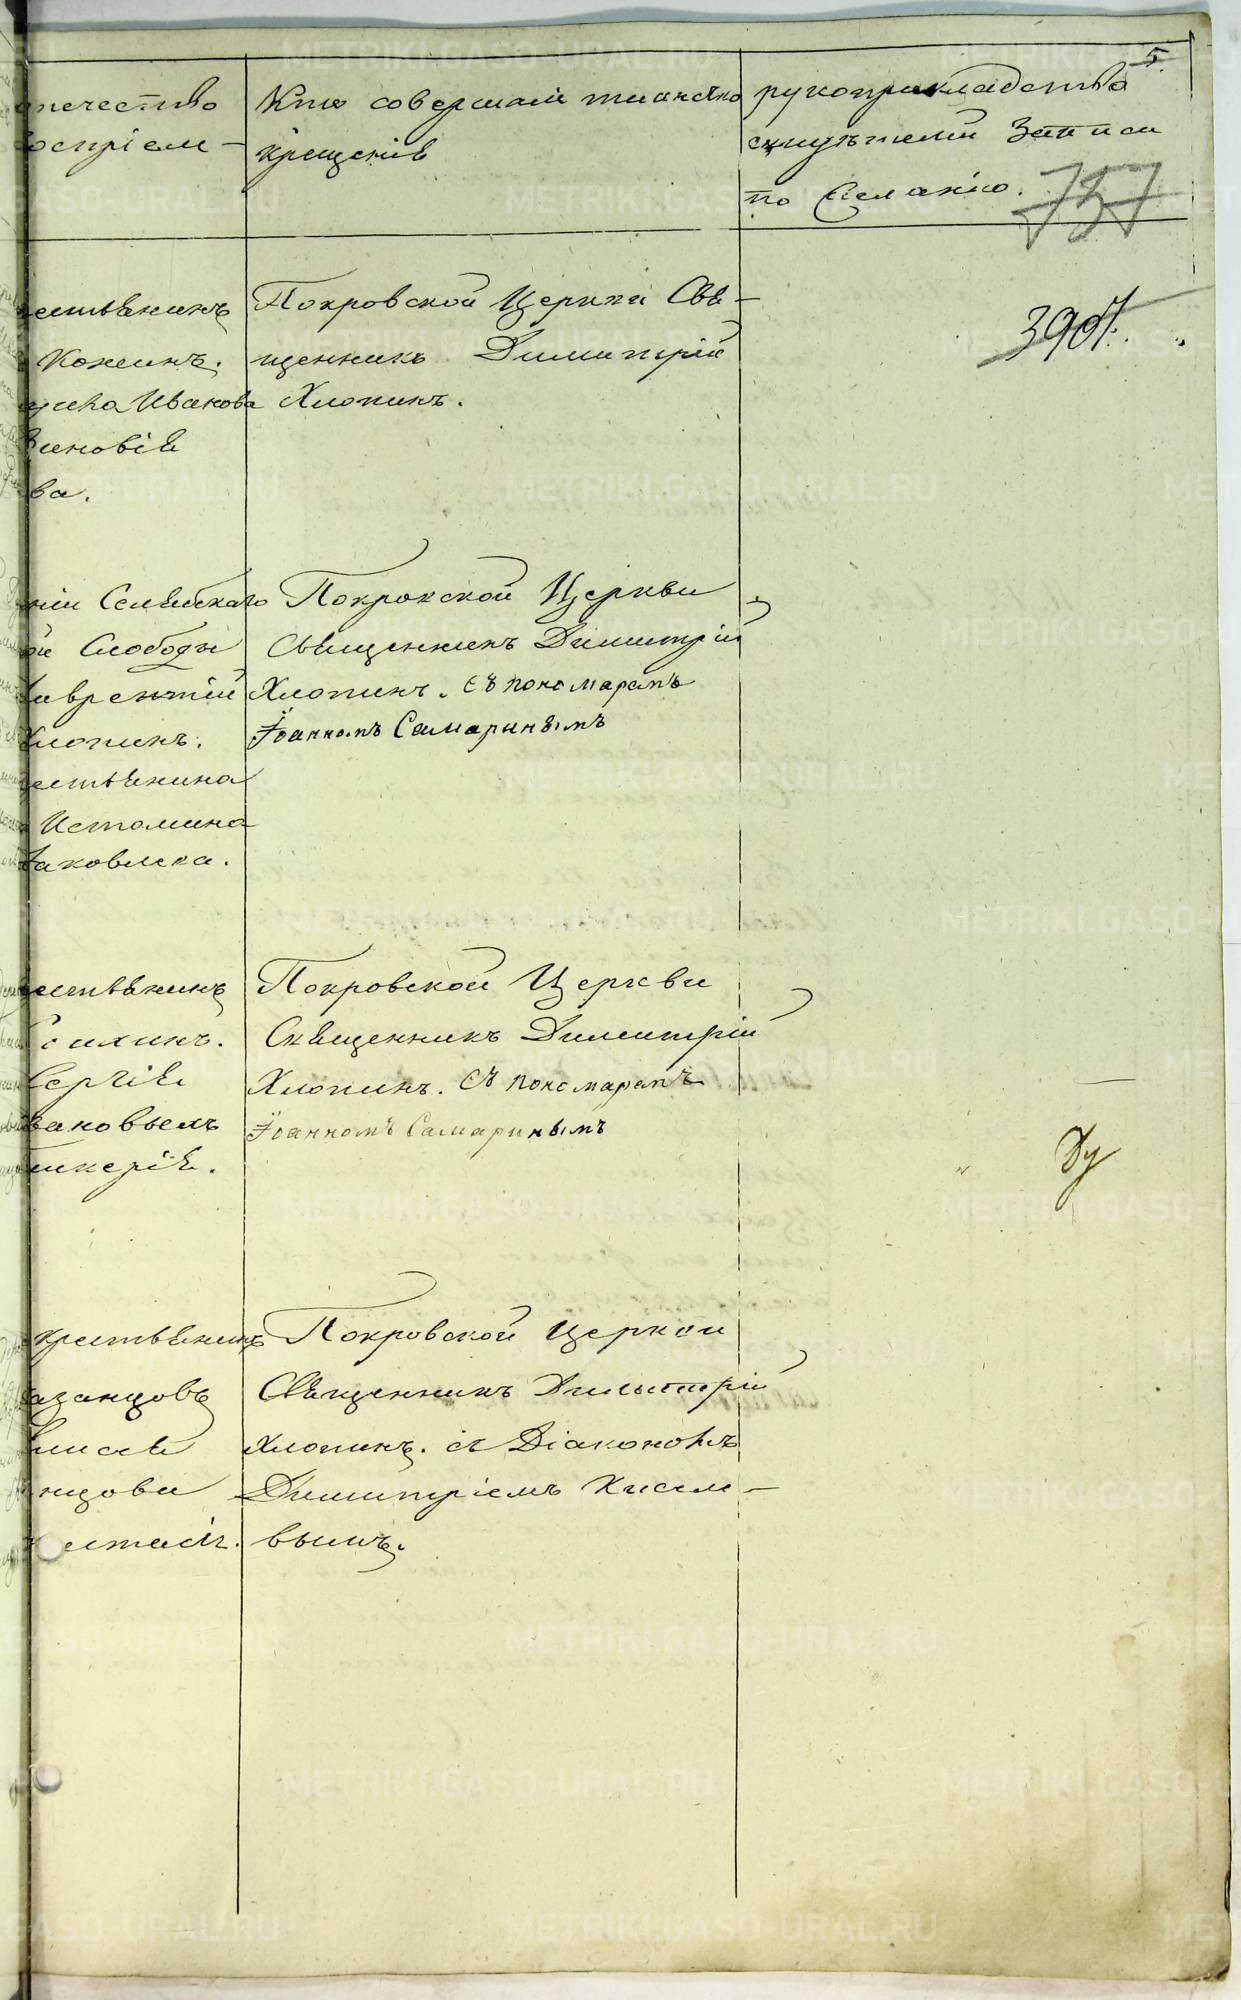 5.
отечество
воспріем-
Кто совершалъ таинство
крещенія
рукоприкладство
свидѣтелей записи
по желанію.
757
390/.
естьянинъ
Кожинъ.
Иванова
иновія
ва.
Покровской Церкви Свя-
щенникъ Димитрій
Хлопинъ.
Селябскаго
ой Слободы
Лаврентій
Хлопинъ.
естьянина
Истомина
Яковлева.
Покровской Церкви
Священникъ Димитрій
Хлопинъ. съ пономаремъ
Іоанномъ Самаринымъ
естьянинъ
Сергія
вановыхъ
Гликерія.
Покровской Церкви
Священникъ Димитрій
Хлопинъ. Съ пономаремъ
Іоанномъ Самаринымъ
Ду
крестьянинъ
азанцовъ
нцова
Покровской Церкви
Священникъ Димитрій
Хлопинъ. съ Діакономъ
Димитріемъ Кисел-
вымъ.
METRIKI.GASO-URAL.RU